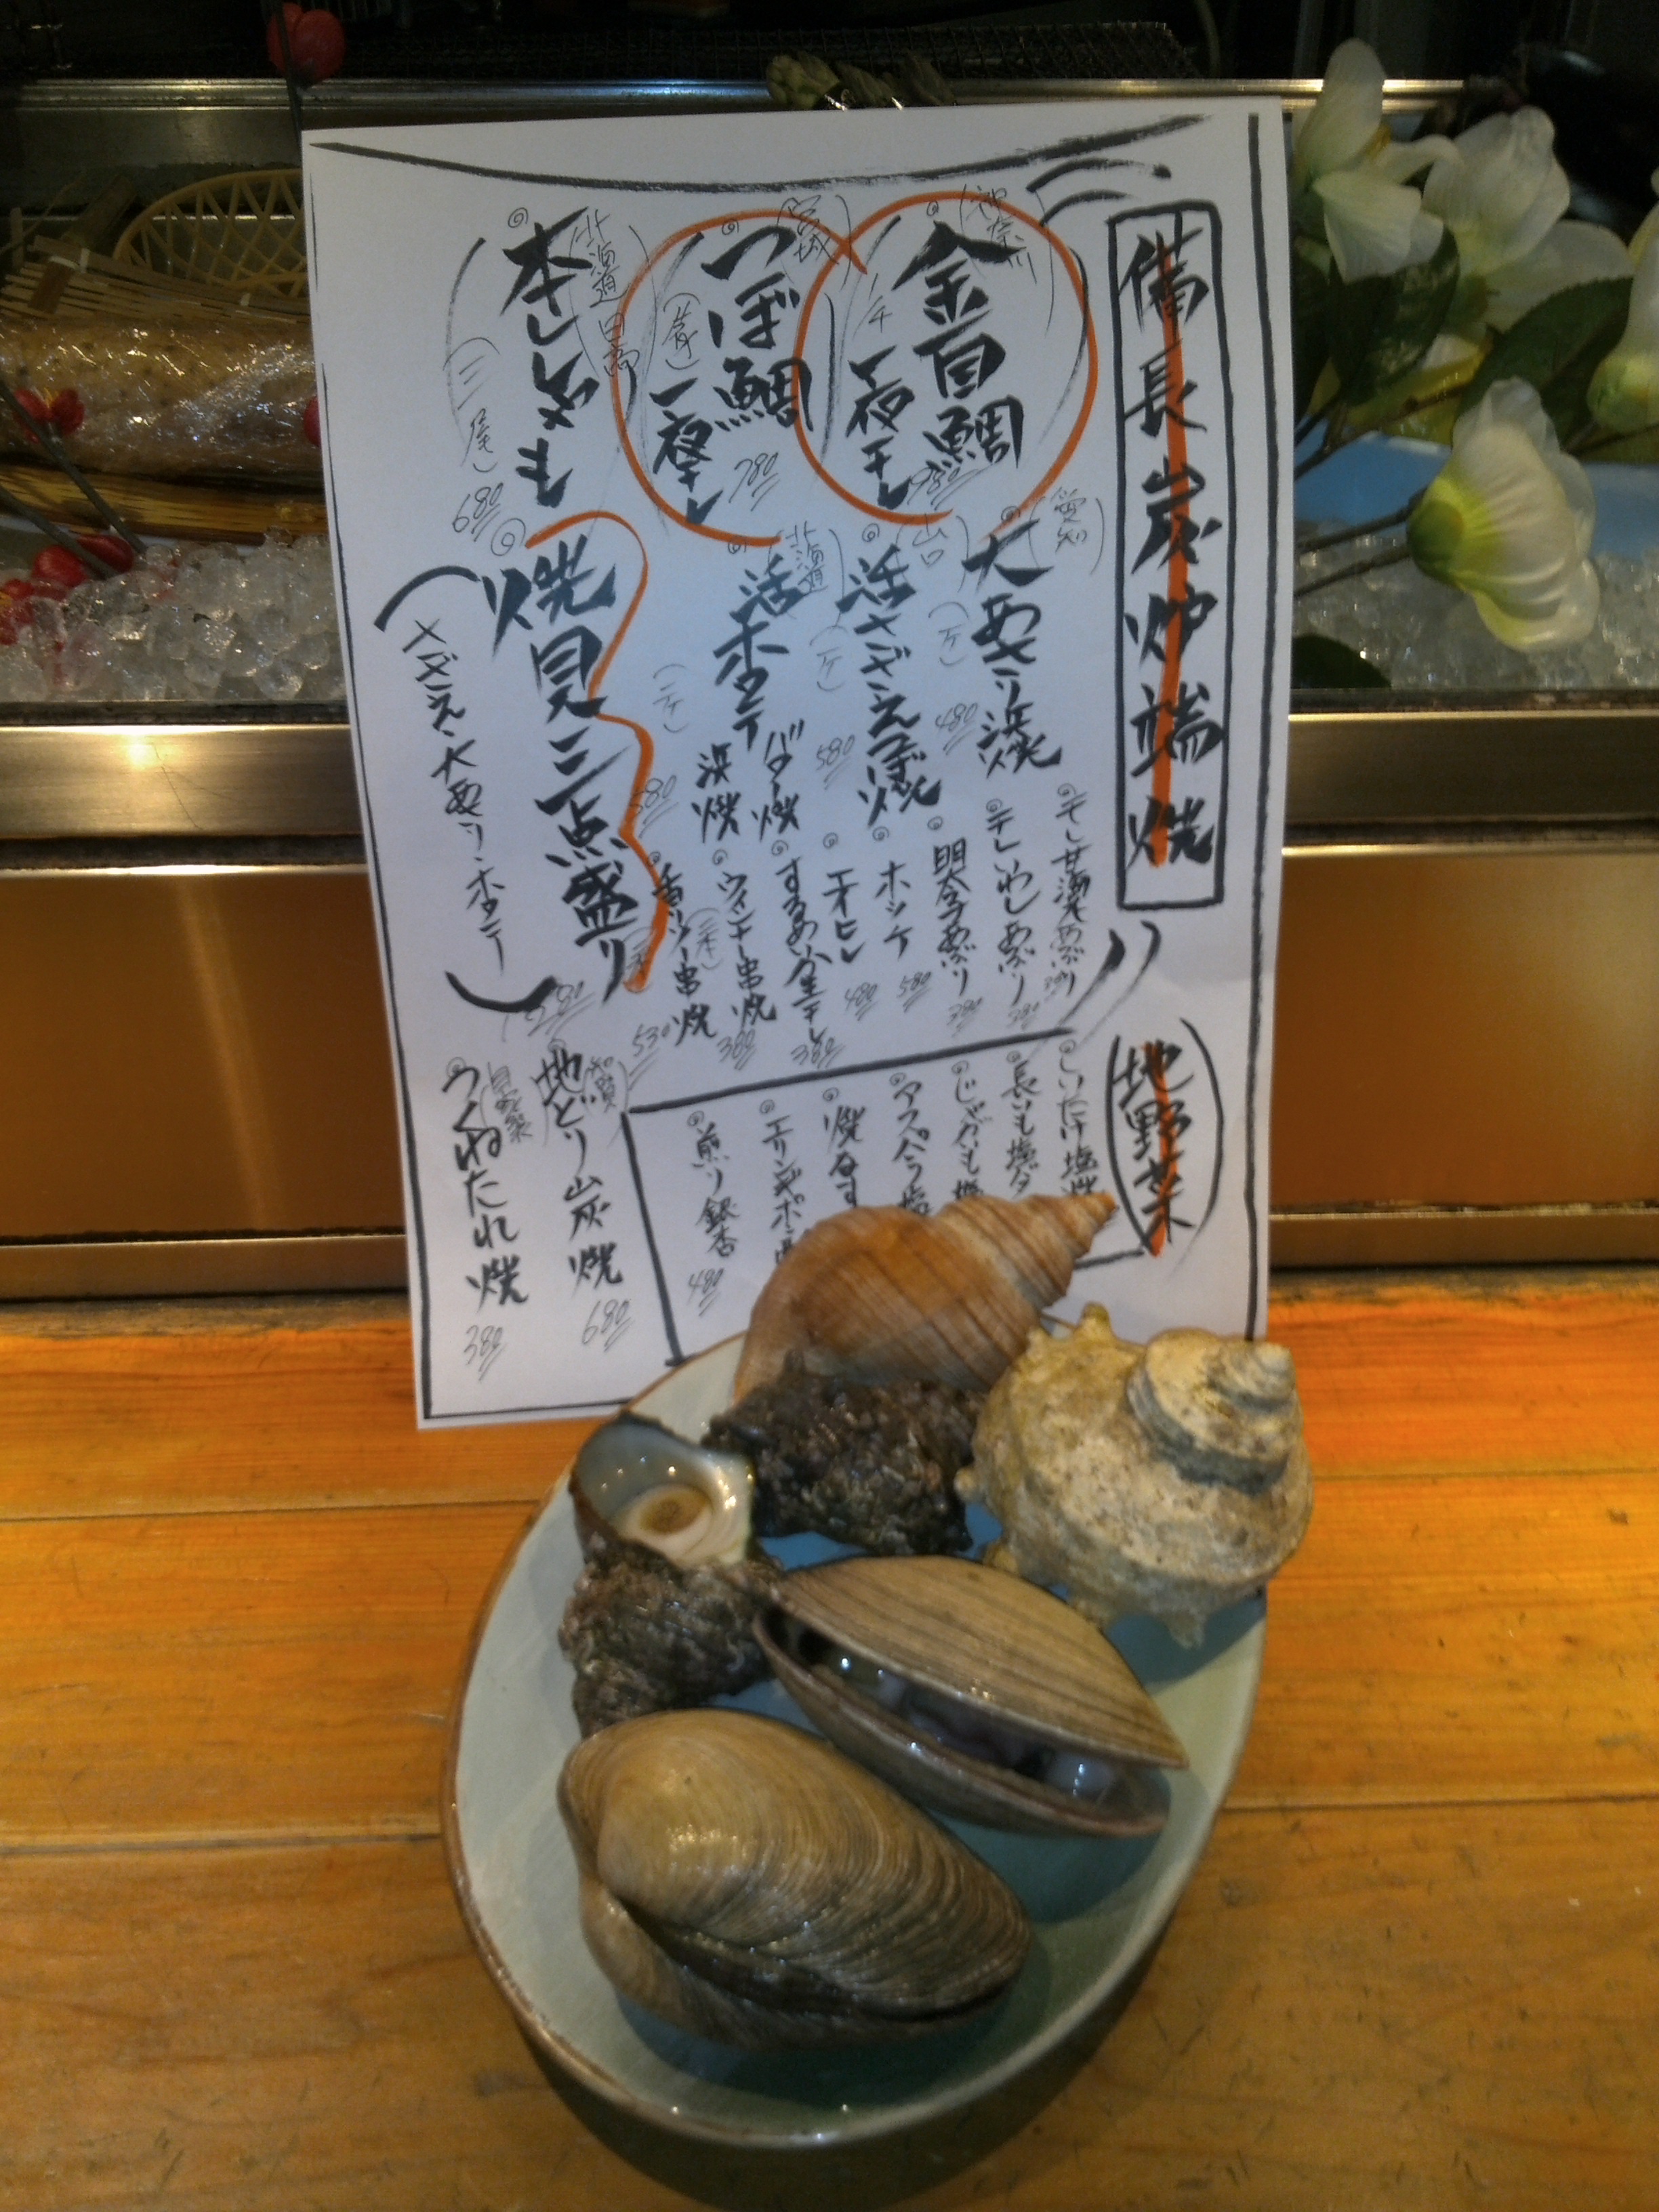 備長炭炉端焼
(神奈川)
金目鯛
一夜干し
980
(宮城)
つぼ鯛
(片身)一夜干し
780
(北海道日高)
本ししゃも
(三尾)
680
(愛知)
大あさり浜焼
(一ケ)
480
(山口)
活さざえつぼ焼
(一ケ)
580
(北海道)
活ホタテ
バター焼
浜焼
(二ケ)
580
焼貝三点盛り
(サザエ・大あさり・ホタテ)
干し甘海老あぶり
干しいわしあぶり
380
明太子あぶり
380
ホッケ
580
エイヒレ
480
するめいか生干し
380
ウィンナー串焼
(二本)
380
530
(地野菜)
しいたけ塩焼
長いも塩
じゃがいも
アスパラ塩
焼なす
エリンギポン
煎り銀杏
480
地どり炭焼
680
(自家製)
つくねたれ焼
380